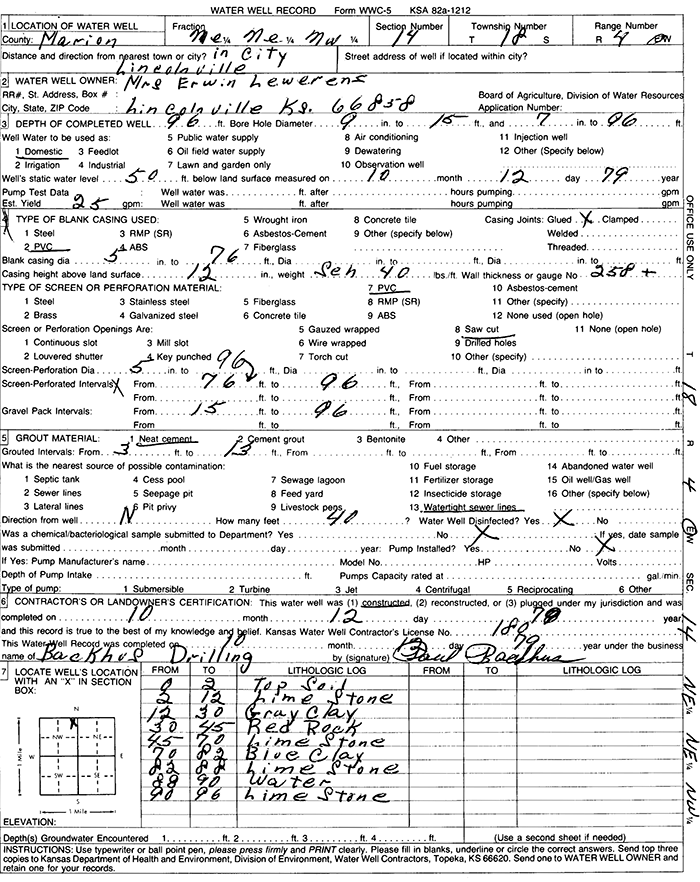 WATER WELL RECORD Form WWC-5 KSA 82a-1212
1 LOCATION OF WATER WELL Fraction Section Number Township Number Range Number
County: Marion Ne ¼ Ne ¼ Nw ¼ 14 T 18 S R 4 E/W
Distance and direction from nearest town or city? in City Street address of well if located within city?
Lincolnville
2 WATER WELL OWNER: Mrs Erwin Lewerens
RR#, St. Address, Box # : Board of Agriculture, Division of Water Resources
City, State, ZIP Code : Lincolnville Ks. 66858 Application Number:
3 DEPTH OF COMPLETED WELL 96 ft. Bore Hole Diameter 9 in. to 15 ft., and 7 in. to 96 ft.
Well Water to be used as: 5 Public water supply 8 Air conditioning 11 Injection well
1 Domestic 3 Feedlot 6 Oil field water supply 9 Dewatering 12 Other (Specify below)
2 Irrigation 4 Industrial 7 Lawn and garden only 10 Observation well
Well's static water level 50 ft. below land surface measured on 10 month 12 day 79 year
Pump Test Data : Well water was ft. after hours pumping gpm
Est. Yield 25 gpm: Well water was ft. after hours pumping gpm
4 TYPE OF BLANK CASING USED: 5 Wrought iron 8 Concrete tile Casing Joints: Glued X Clamped
1 Steel 3 RMP (SR) 6 Asbestos-Cement 9 Other (specify below) Welded
2 PVC 4 ABS 7 Fiberglass Threaded
Blank casing dia 5 in. to 76 ft., Dia in. to ft., Dia in. to ft.
Casing height above land surface 12 in., weight Sch 40 lbs./ft. Wall thickness or gauge No 258 +
TYPE OF SCREEN OR PERFORATION MATERIAL: 7 PVC 10 Asbestos-cement
1 Steel 3 Stainless steel 5 Fiberglass 8 RMP (SR) 11 Other (specify)
2 Brass 4 Galvanized steel 6 Concrete tile 9 ABS 12 None used (open hole)
Screen or Perforation Openings Are: 5 Gauzed wrapped 8 Saw cut 11 None (open hole)
1 Continuous slot 3 Mill slot 6 Wire wrapped 9 Drilled holes
2 Louvered shutter 4 Key punched 7 Torch cut 10 Other (specify)
Screen-Perforation Dia 5 in. to 96 ft., Dia in. to ft., Dia in. to ft.
Screen-Perforated Intervals X From 76 ft. to 96 ft., From ft. to ft.
From ft. to ft., From ft. to ft.
Gravel Pack Intervals: From 15 ft. to 96 ft., From ft. to ft.
From ft. to ft., From ft. to ft.
5 GROUT MATERIAL: 1 Neat cement 2 Cement grout 3 Bentonite 4 Other
Grouted Intervals: From 3 ft. to 13 ft., From ft. to ft., From ft. to ft.
What is the nearest source of possible contamination: 10 Fuel storage 14 Abandoned water well
1 Septic tank 4 Cess pool 7 Sewage lagoon 11 Fertilizer storage 15 Oil well/Gas well
2 Sewer lines 5 Seepage pit 8 Feed yard 12 Insecticide storage 16 Other (specify below)
3 Lateral lines 6 Pit privy 9 Livestock pens 13 Watertight sewer lines
Direction from well N How many feet 40 ? Water Well Disinfected? Yes X No
Was a chemical/bacteriological sample submitted to Department? Yes No X If yes, date sample
was submitted month day year: Pump Installed? Yes No X
If Yes: Pump Manufacturer's name Model No. HP Volts
Depth of Pump Intake ft. Pumps Capacity rated at gal./min.
Type of pump: 1 Submersible 2 Turbine 3 Jet 4 Centrifugal 5 Reciprocating 6 Other
6 CONTRACTOR'S OR LANDOWNER'S CERTIFICATION: This water well was (1) constructed, (2) reconstructed, or (3) plugged under my jurisdiction and was
completed on 10 month 12 day 79 year
and this record is true to the best of my knowledge and belief. Kansas Water Well Contractor's License No. 180
This Water Well Record was completed on 10 month 12 day 79 year under the business
name of Backhus Drilling by (signature) Paul Backhus
7 LOCATE WELL'S LOCATION FROM TO LITHOLOGIC LOG FROM TO LITHOLOGIC LOG
WITH AN "X" IN SECTION BOX:
0 2 Top Soil
2 12 Lime Stone
12 30 Gray Clay
30 45 Red Rock
45 70 Lime Stone
70 82 Blue Clay
82 88 Lime Stone
88 90 Water
90 96 Lime Stone
N
X
NW NE
W E
SW SE
S
1 Mile
1 Mile
ELEVATION:
Depth(s) Groundwater Encountered 1. ft. 2. ft. 3. ft. 4. ft. (Use a second sheet if needed)
INSTRUCTIONS: Use typewriter or ball point pen, please press firmly and PRINT clearly. Please fill in blanks, underline or circle the correct answers. Send top three
copies to Kansas Department of Health and Environment, Division of Environment, Water Well Contractors, Topeka, KS 66620. Send one to WATER WELL OWNER and
retain one for your records.
OFFICE USE ONLY
T 18 R 4 E/W SEC. 14 NE ¼ NE ¼ NW ¼